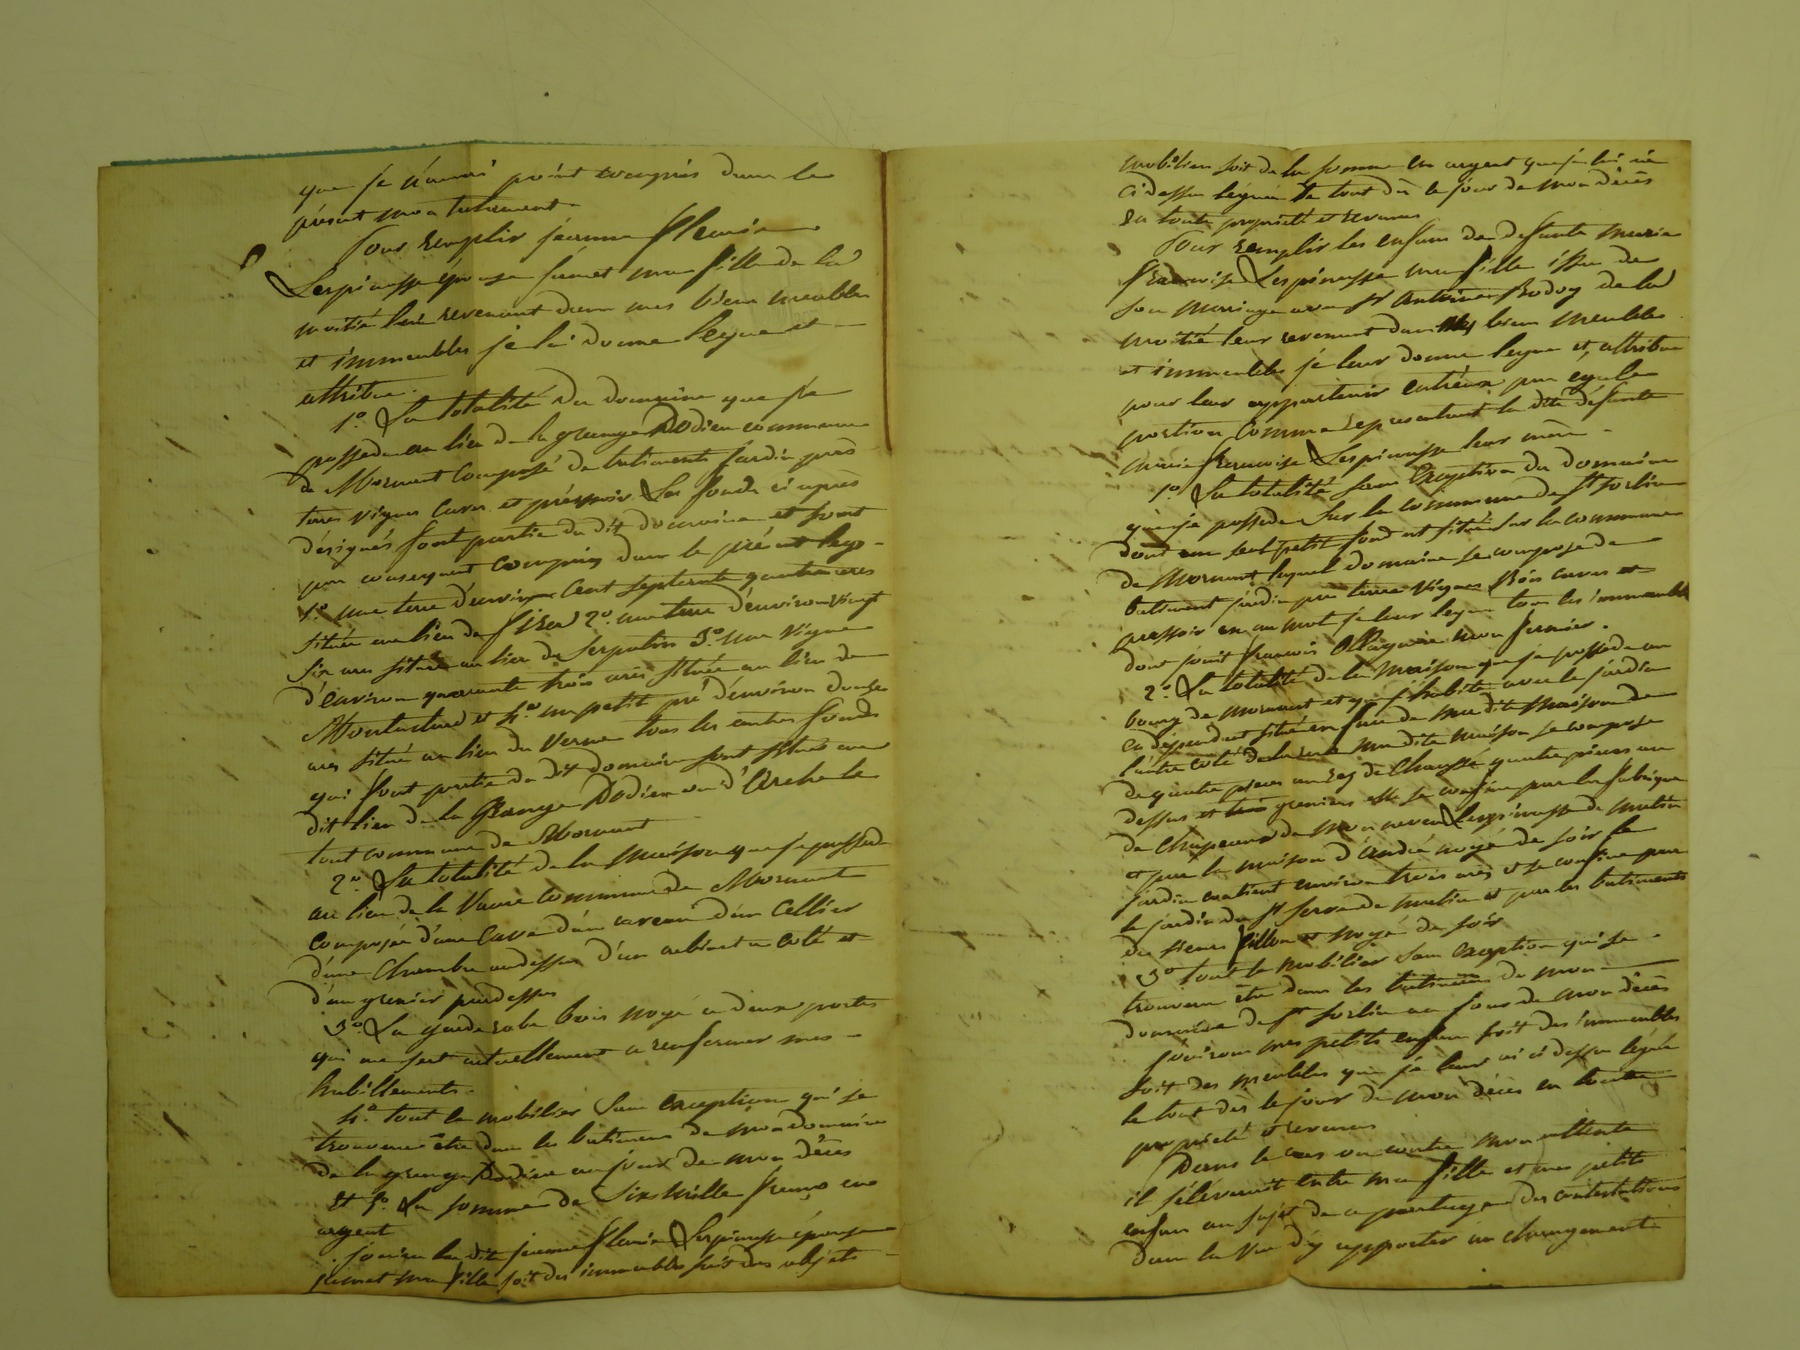 que je n'aurai point compris dans le
présent mon testament.
Pour remplir jeanne fleurie
Lespinasse épouse jamet ma fille de la
moitié lui revenant dans mes bien meubles
et immeubles je lui donne legue et
attribue.
1º La totalité du domaine que je
possede au lieu de la grange Dodieu commune
de Mornant Composé de batiments jardin près
terres vignes Caves et préssoir Les fonds ci après
désignés font partie du dit domaine et sont
par consequent compris dans le présent legs
1º une terre d'environ Cent septente quatre ares
située au lieu de 2º une terre d'environ vingt
six ares située au lieu du Serpatin 3º une vigne
d'environ quarante trois ares située au lieu de
et 4º un petit pré d'environ douze
ares situé au lieu du Verne tous les autres fonds
qui font partie du dit domaine sont situés au
dit lieu de la Grange Dodieu ou d'Arche le
tout commune de Mornant
2º La totalité de la Maison que je possede
au lieu de la Vaure Commune de Mornant
composée d'une Cave d'un caveau d'un Cellier
d'une Chambre audessus d'un cabinet a coté et
d'un grenier pardessus
3º La garde robe bois noyé a deux portes
qui me sert actuellement a renfermer mes
habillements.
4º tout le mobilier sans exception qui se
trouvera être dans les batimens de mon domaine
de la grange Dodieu au jour de mon décès
Et 5º La somme de Six Mille francs en
argent
jouira la dite jeanne fleurie Lespinasse épouse
jamet ma fille soit des immeubles soit des objets
mobiliers soit de la somme en argent que je lui ai
ci dessus légués le tout dès le jour de mon décès
en toute propriété et revenus
Pour remplir les enfans de defunte marie
francoise Lespinasse ma fille issu de
son mariage avec Sr antoine Bodoy de la
moitié leur revenant dans mes biens meubles
et immeubles je leur donne legue et attribue
pour leur appartenir entreux par egale
portion Comme representant la dite défunte
marie francoise Lespinasse leur mère
1º La totalité sans Exeption du domaine
que je possede Sur la commune de St sorlin
dont un seul petit fond est situé sur la commune
de Mornant lequel domaine se compose de
batiment jardin pré terre vignes Bois caves et
pressoir en un mot je leur legue tous les immeubles
dont jouit francois mon fermier.
2º La totalité de la Maison que je possede au
bourg de mornant et que j'habite avec le jardin
en dépend et situé en face de ma dite Maison de
l'autre coté de la rue ma dite maison se compose
de quatre pieces au rez de Chaussé quatre pieces au
dessus et trois greniers elle se confine par la fabrique
de Chapeaux de mon neveu Lespinasse de matin
et par la maison d'André noyé de soir Le
jardin contient environ trois ares et se confine par
le jardin du Sr ferra de matin et par les batiments
du sieurs fillon et noyé de soir
3º tout le mobilier sans exeption qui se
trouvera être dans les batimens de mon
domaine de St sorlin au jour de mon décès
jouiront mes petits enfans soit des immeubles
soit des meubles que je leur ai ci dessus légués
le tout dès le jour de mon décès en toute
propriété et revenus
Dans le cas ou contre mon attente
il s'éleverait entre ma fille et mes petits
enfans au sujet de ce partage des contestations
dans la vue d'y apporter un changement